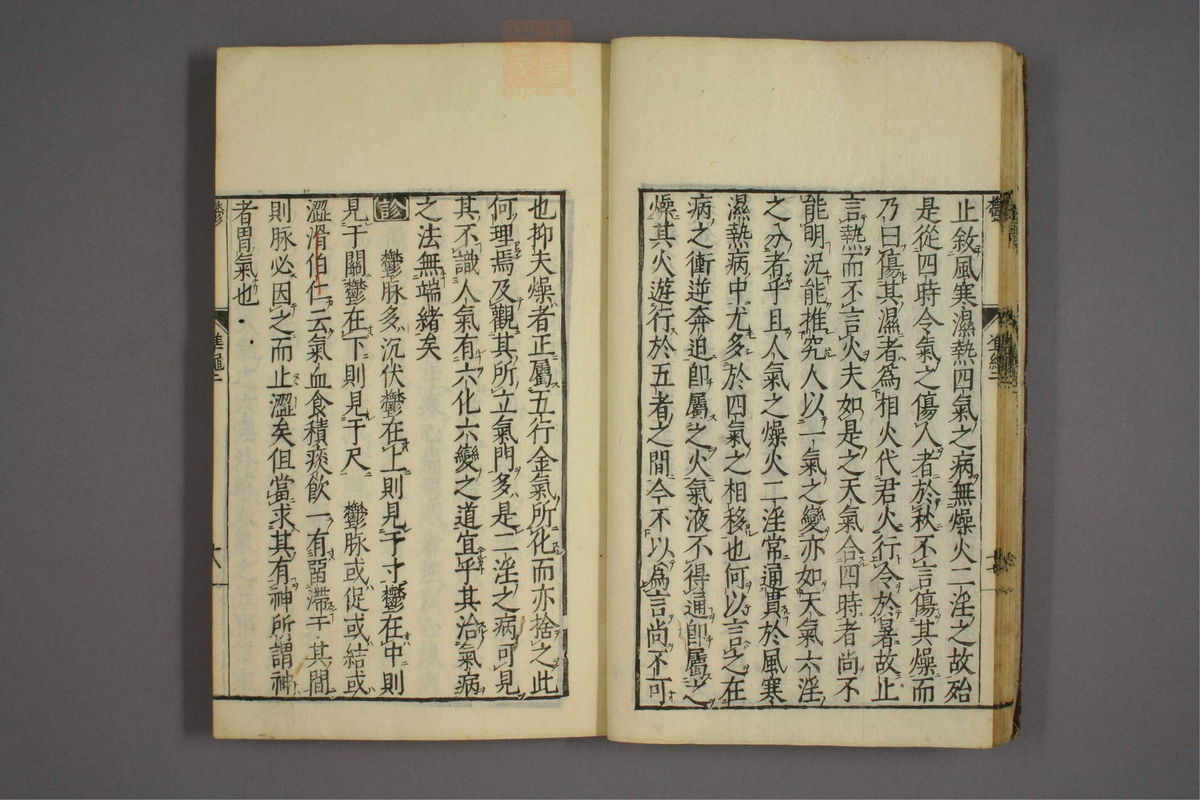 止敘風寒濕熱四氣之病無燥火二淫之故殆
是從四時令氣之傷人者於秋不言傷其燥而
乃曰傷其濕者為相火代君火行令於暑故止
言熱而不言火夫如是之天氣合四時者尚不
能明況能推究人以一氣之變亦如天氣六淫
之分者乎且人氣之燥火二淫常通貫於風寒
濕熱病中尤多於四氣之相移也何以言之在
病之衝逆奔迫即屬之火氣液不得通即屬之
燥其火遊行於五者之間今不以為言尚不可
也抑夫燥者正屬五行金氣所化而亦捨之此
何理焉及觀其所立氣門多是二淫之病可見
其不識人氣有六化六變之道宜乎其治氣病
之法無端緒矣
診 鬱脉多沉伏鬱在上則見于寸鬱在中則
見于關鬱在下則見于尺 鬱脉或促或結或
澀滑伯仁云氣血食積痰飲一有留滯于其間
則脉必因之而止澀矣但當求其有神所謂神
者胃氣也
鬱
準繩二